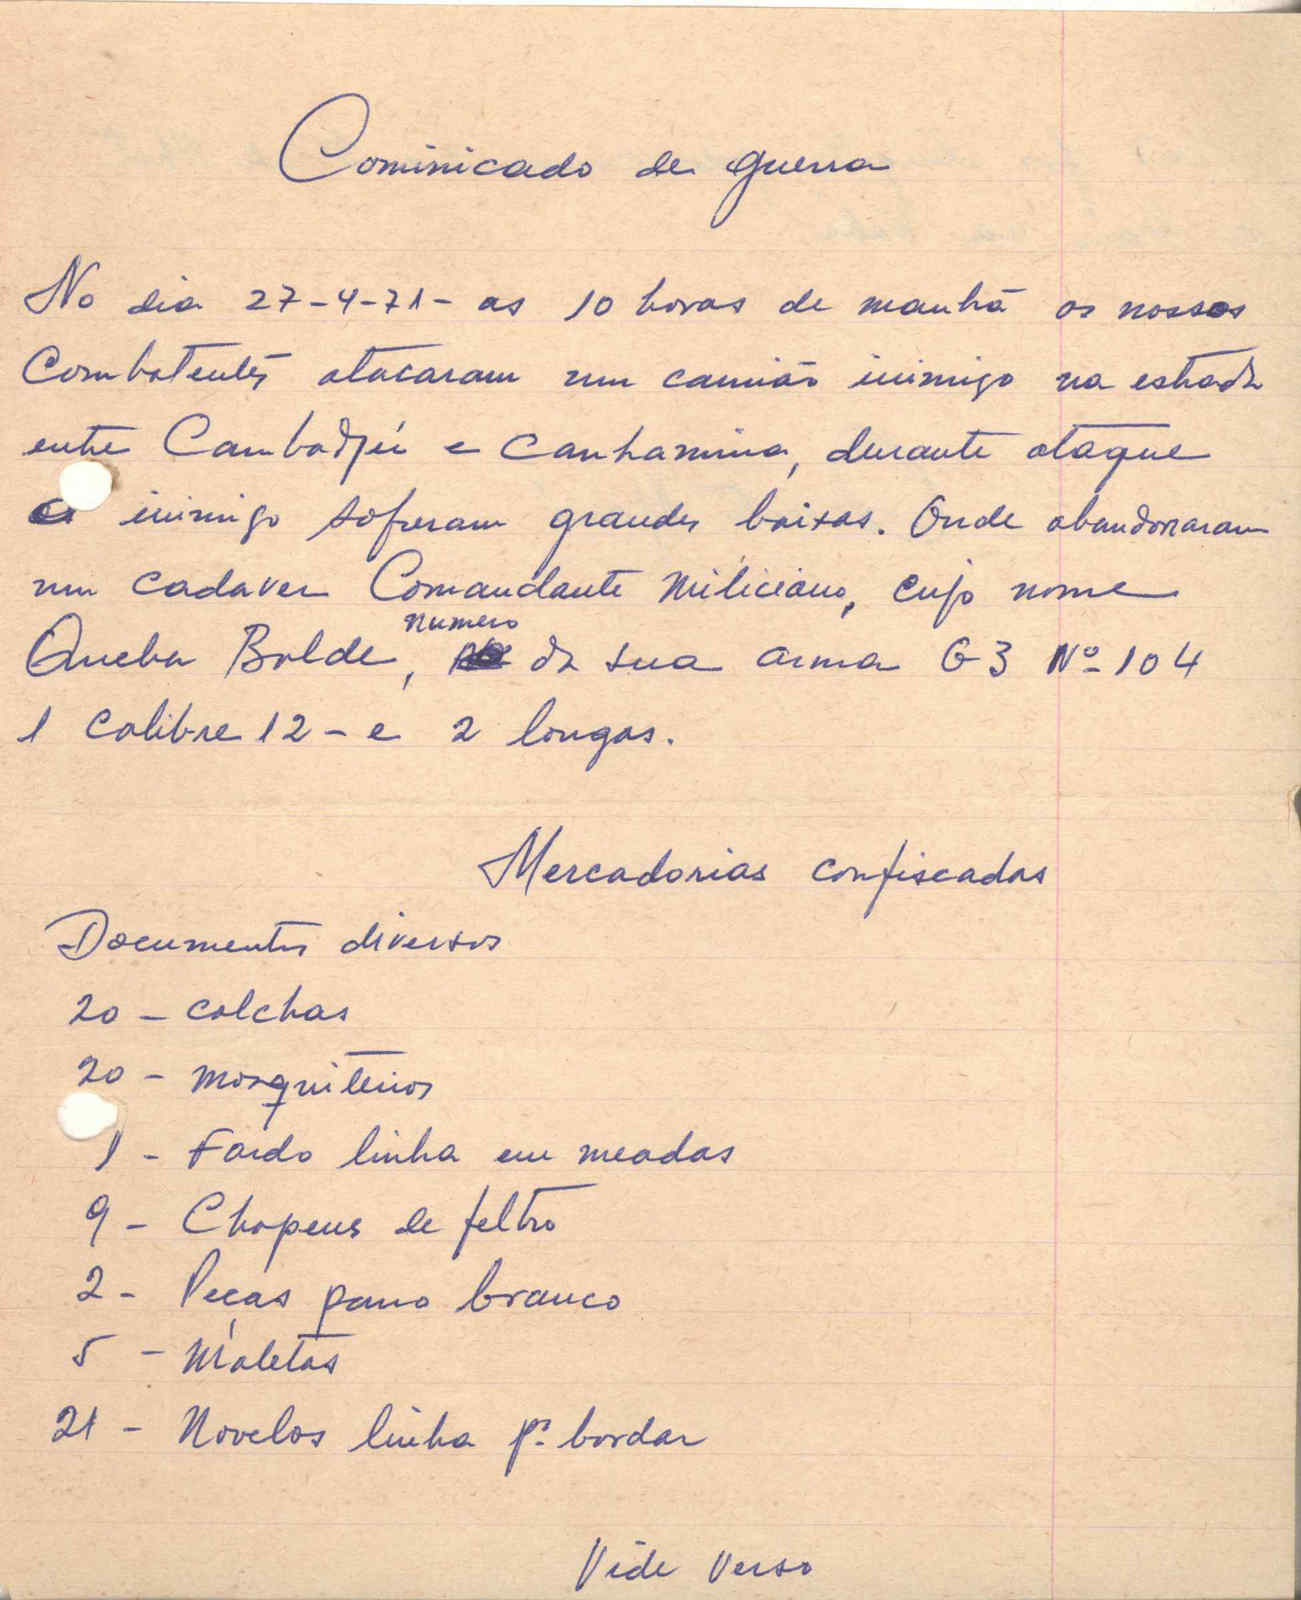 Cominicado de guerra
No dia 27-4-71- as 10 horas de manhã os nossos
Combatentes atacaram um camião inimigo na estrada
entre Cambadjú e Canhamina, durante ataque
inimigo sofreram grandes baixas. Onde abandonaram
um cadaver Comandante Miliciano, cujo nome
Queba Balde, numero da sua arma G3 Nº 104
1 Calibre 12 - e 2 longas.
Mercadorias confiscadas
Documentos diversos
20 - colchas
20 - mosquiteiros
1 - Fardo linha em meadas
9 - Chapeus de feltro
2 - Peças pano branco
5 - Maletas
21 - Novelos linha pª bordar
Vide Verso